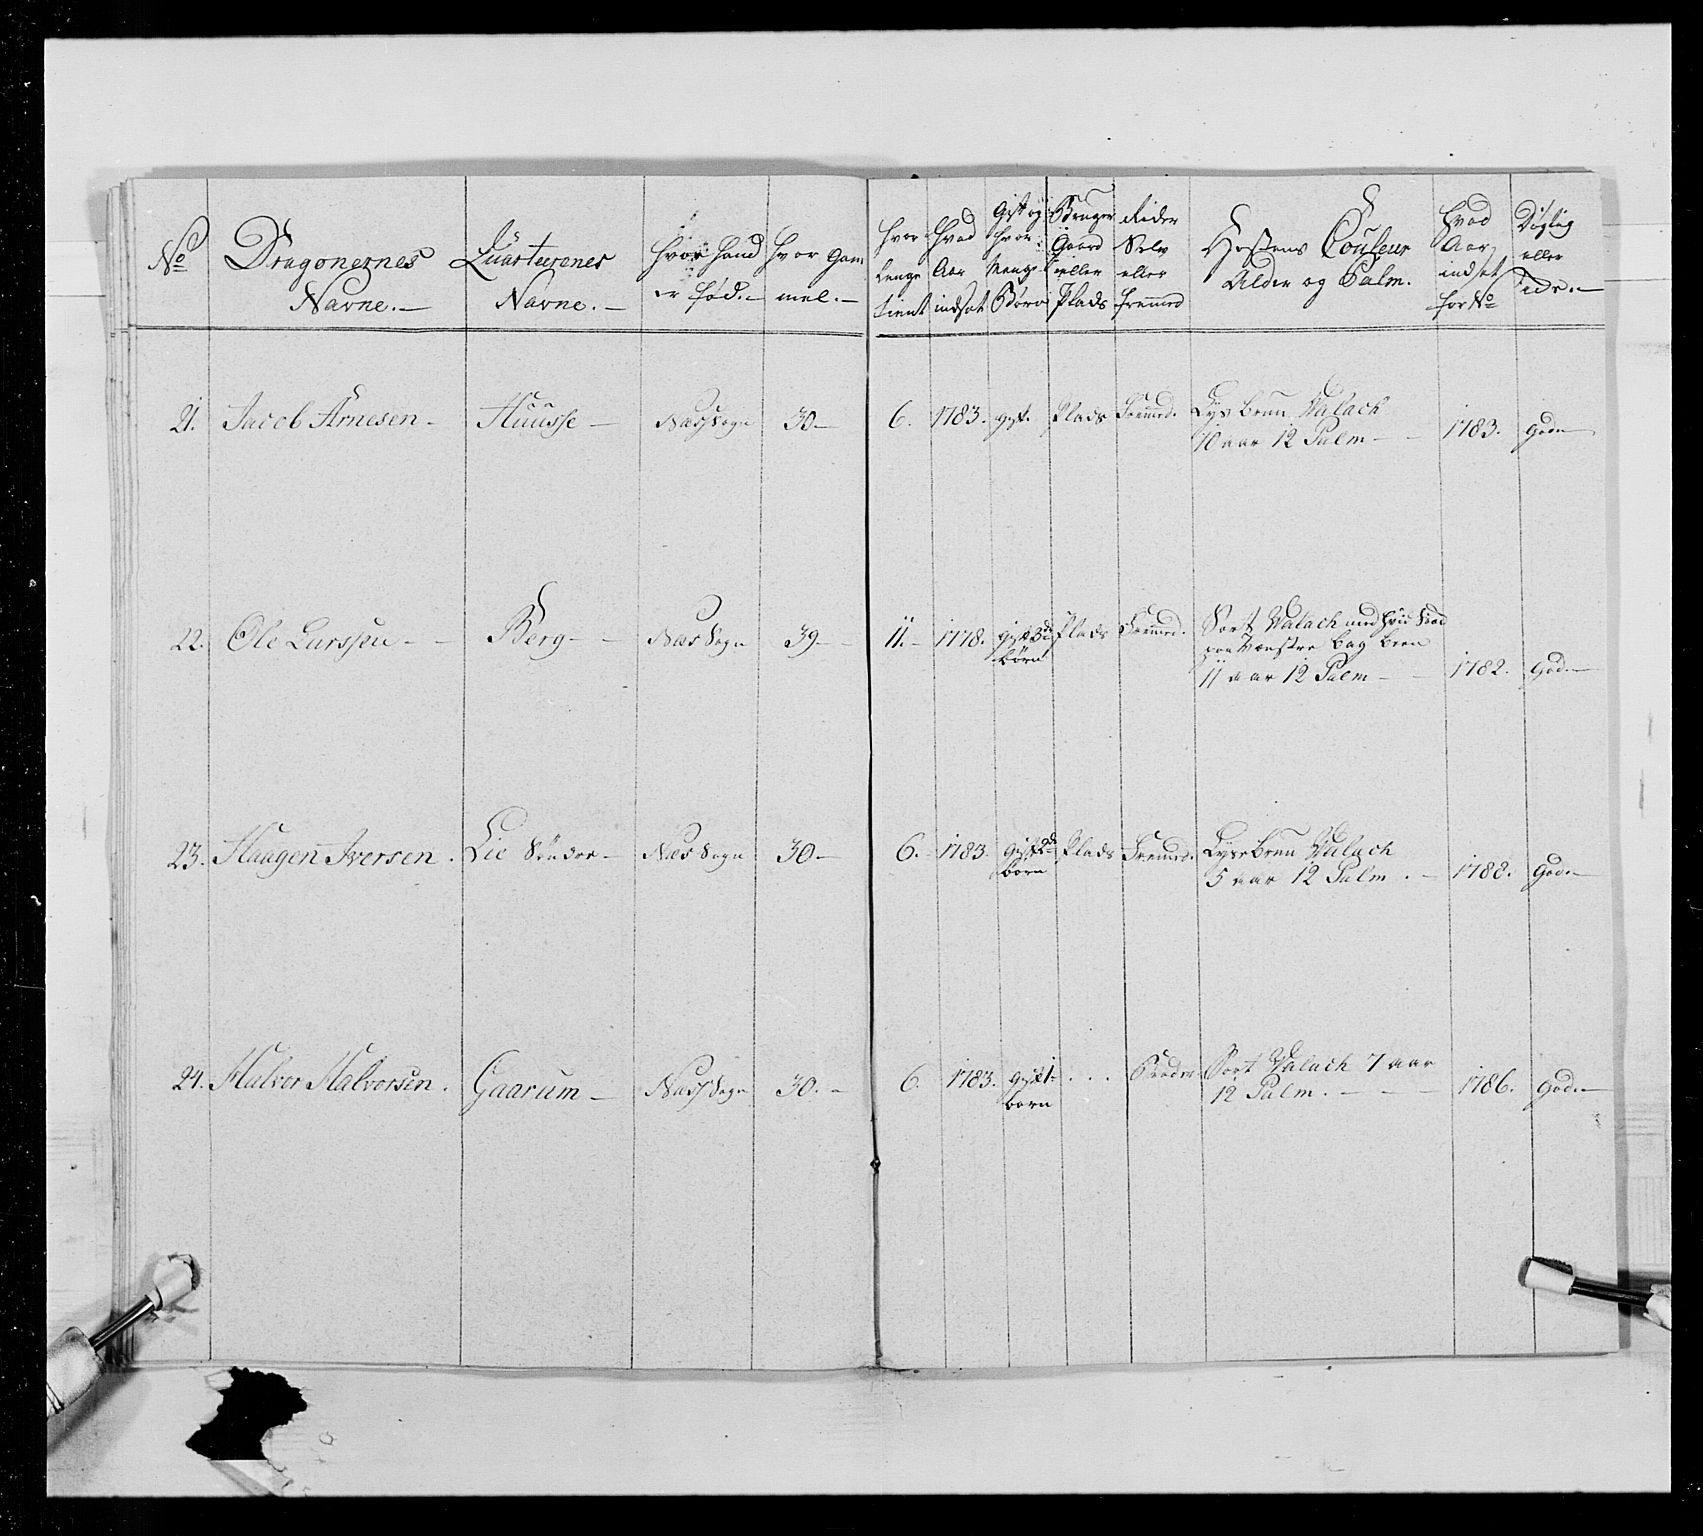 No
Dragonernes
Navne.
Quarteerenes
Navne.
hvor hand
er fød.
hvor Gam
mel.
hvor
lenge
tient
hvad
Aar
indsat
Gift og
hvor
Mange
Børn
Bruger
Gaard
eller
Plads
Rider
Selv
eller
fremed
Hestens Couleur
Alder og Palm.
hvad
Aar
indsat
for No
Dygtig
eller
21. Jacob Arnesen Huusse Næs Sogn 30 6. 1783. gift. Plads Fremed. Lys brun Walach
10 aar 12 Palm 1783. god
22. Ole Larssen Berg Næs Sogn 39 11. 1778. gift 3de Plads Fremed. Sort Walach med hvid
børn paa Venstre bag been
11 aar 12 Palm 1782. god.
23. Haagen Iversen. Lie Sønder Næs Sogn 30 6. 1783. gift 2de Plads Fremed. Lyse brun Walach
børn 5 aar 12 Palm. 1788. god.
24. Halvor Halvorsen. Gaarum Næs Sogn 30. 6. 1783. gift 1 Sort Walach 7 aar
børn 12 Palm. 1786. god.